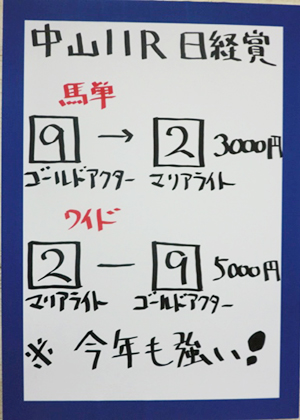 中山11R 日経賞
馬単
9 → 2 3000円
ゴールドアクター マリアライト
ワイド
2 ー 9 5000円
マリアライト ゴールドアクター
※ 今年も強い!